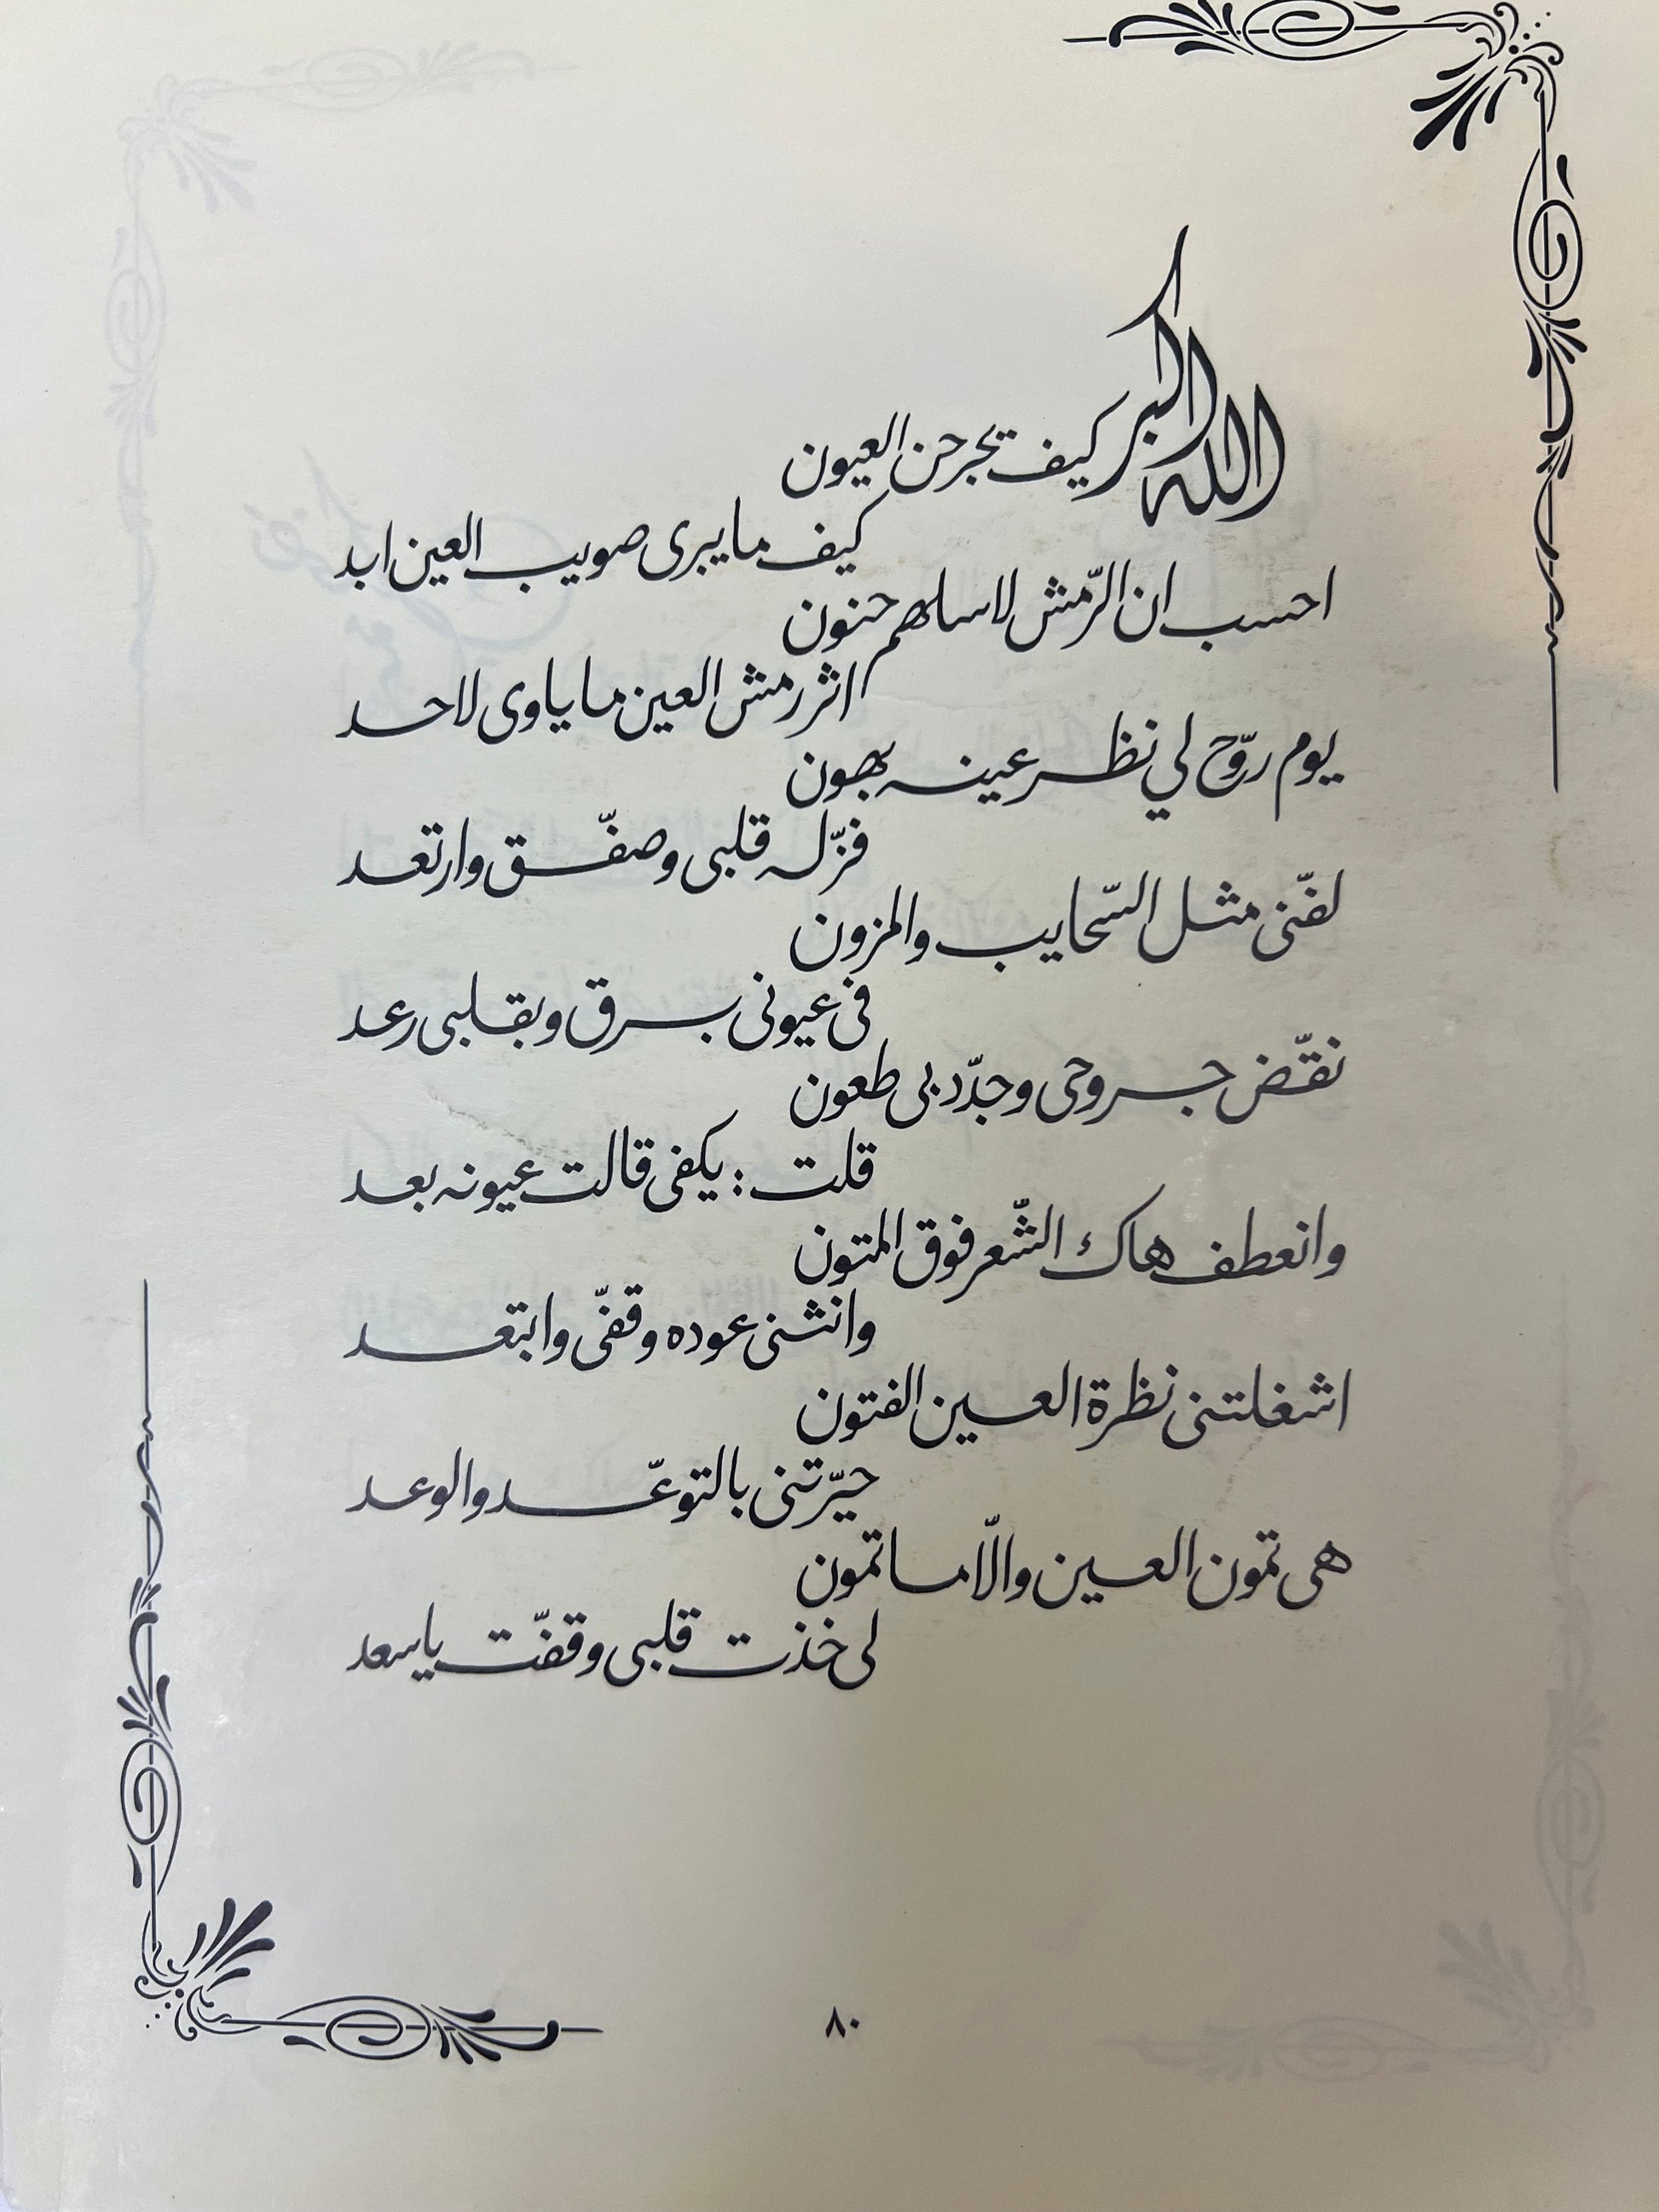 الله اكبر كيف يجرحن العيون
كيف ما يبرى صويب العين ابد
احسب ان الرّمش لا سلهم حنون
اثر رمش العين ما ياوى لاحد
يوم روّح لي نظر عينه بهون
فزّ له قلبى وصفّق وارتعد
لفّنى مثل السّحايب والمزون
فى عيونى برق وبقلبى رعد
نقّض جروحى وجدّد بى طعون
قلت : يكفى قالت عيونه بعد
وانعطف هاك الشّعر فوق المتون
وانثنى عوده وقفّى وابتعد
اشغلتنى نظرة العين الفتون
حيّرتنى بالتوعّد والوعد
هى تمون العين والّا ما تمون
لى خذت قلبى وقفّت يا سعد
٨٠